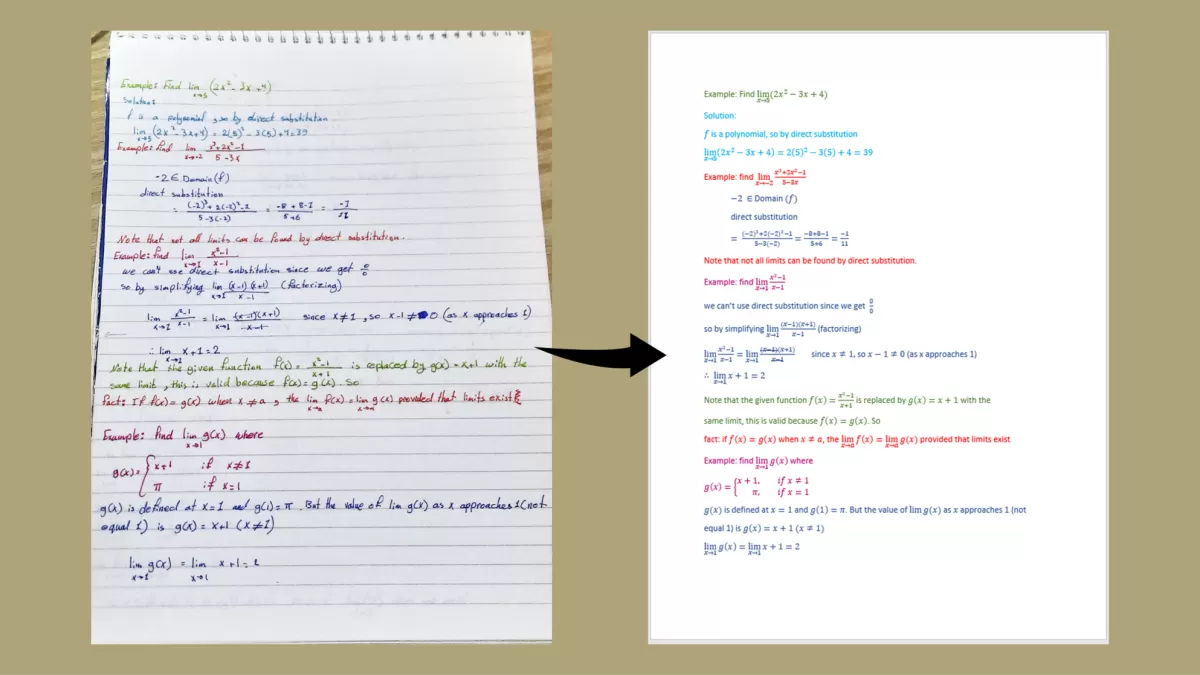 Example: Find lim x→5 (2x² - 3x + 4)
Solution:
f is a polynomial, so by direct substitution
lim x→5 (2x² - 3x + 4) = 2(5)² - 3(5) + 4 = 39
Example: find lim x→-2 (x³ + 2x² - 1)/(5 - 3x)
-2 ∈ Domain (f)
direct substitution
= ((-2)³ + 2(-2)² - 1)/(5 - 3(-2)) = (-8 + 8 - 1)/(5 + 6) = -1/11
Note that not all limits can be found by direct substitution.
Example: find lim x→1 (x² - 1)/(x - 1)
we can't use direct substitution since we get 0/0
so by simplifying lim x→1 (x-1)(x+1)/(x-1) (factorizing)
lim x→1 (x² - 1)/(x - 1) = lim x→1 (x-1)(x+1)/(x-1) since x ≠ 1, so x - 1 ≠ 0 (as x approaches 1)
∴ lim x→1 x + 1 = 2
Note that the given function f(x) = (x² - 1)/(x + 1) is replaced by g(x) = x + 1 with the
same limit, this is valid because f(x) = g(x). So
fact: If f(x) = g(x) when x ≠ a, the lim x→a f(x) = lim x→a g(x) provided that limits exist
Example: find lim x→1 g(x) where
g(x) = { x + 1 if x ≠ 1
π if x = 1
g(x) is defined at x = 1 and g(1) = π. But the value of lim g(x) as x approaches 1 (not
equal 1) is g(x) = x + 1 (x ≠ 1)
lim x→1 g(x) = lim x→1 x + 1 = 2
Example: Find lim x→5 (2x² − 3x + 4)
Solution:
f is a polynomial, so by direct substitution
lim x→5 (2x² − 3x + 4) = 2(5)² − 3(5) + 4 = 39
Example: find lim x→−2 (x³+2x²−1)/(5−3x)
−2 ∈ Domain (f)
direct substitution
= ((−2)³+2(−2)²−1)/(5−3(−2)) = (−8+8−1)/(5+6) = −1/11
Note that not all limits can be found by direct substitution.
Example: find lim x→1 (x²−1)/(x−1)
we can't use direct substitution since we get 0/0
so by simplifying lim x→1 (x−1)(x+1)/(x−1) (factorizing)
lim x→1 (x²−1)/(x−1) = lim x→1 (x−1)(x+1)/(x−1) since x ≠ 1, so x − 1 ≠ 0 (as x approaches 1)
∴ lim x→1 x + 1 = 2
Note that the given function f(x) = (x²−1)/(x+1) is replaced by g(x) = x + 1 with the
same limit, this is valid because f(x) = g(x). So
fact: if f(x) = g(x) when x ≠ a, the lim x→a f(x) = lim x→a g(x) provided that limits exist
Example: find lim x→1 g(x) where
g(x) = { x + 1, if x ≠ 1
π, if x = 1
g(x) is defined at x = 1 and g(1) = π. But the value of lim g(x) as x approaches 1 (not
equal 1) is g(x) = x + 1 (x ≠ 1)
lim x→1 g(x) = lim x→1 x + 1 = 2